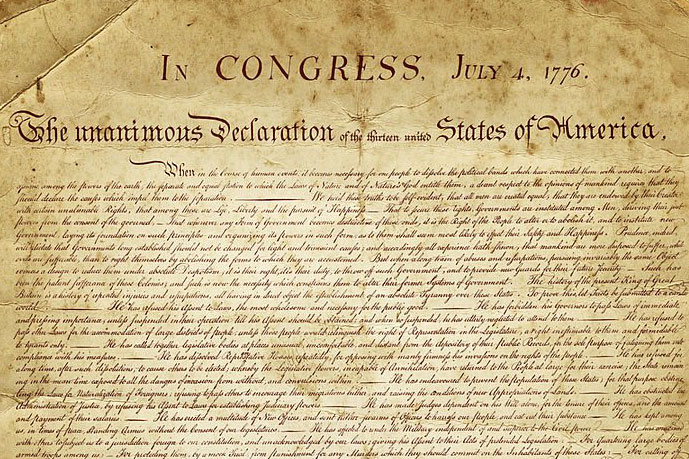 IN CONGRESS, JULY 4, 1776.
The unanimous Declaration of the thirteen united States of America,
When in the Course of human events, it becomes necessary for one people to dissolve the political bands which have connected them with another, and to
assume among the powers of the earth, the separate and equal station to which the Laws of Nature and of Nature's God entitle them, a decent respect to the opinions of mankind requires that they
should declare the causes which impel them to the separation. We hold these truths to be self-evident, that all men are created equal, that they are endowed by their Creator
with certain unalienable Rights, that among these are Life, Liberty and the pursuit of Happiness. — That to secure these rights, Governments are instituted among Men, deriving their just
powers from the consent of the governed, — That whenever any Form of Government becomes destructive of these ends, it is the Right of the People to alter or to abolish it, and to institute new
Government, laying its foundation on such principles and organizing its powers in such form, as to them shall seem most likely to effect their Safety and Happiness. Prudence, indeed,
will dictate that Governments long established should not be changed for light and transient causes; and accordingly all experience hath shewn, that mankind are more disposed to suffer, while
evils are sufferable, than to right themselves by abolishing the forms to which they are accustomed. But when a long train of abuses and usurpations, pursuing invariably the same Object
evinces a design to reduce them under absolute Despotism, it is their right, it is their duty, to throw off such Government, and to provide new Guards for their future security. — Such has
been the patient sufferance of these Colonies; and such is now the necessity which constrains them to alter their former Systems of Government. The history of the present King of Great
Britain is a history of repeated injuries and usurpations, all having in direct object the establishment of an absolute Tyranny over these States. To prove this, let Facts be submitted to a candid
world. He has refused his Assent to Laws, the most wholesome and necessary for the public good. He has forbidden his Governors to pass Laws of immediate
and pressing importance, unless suspended in their operation till his Assent should be obtained; and when so suspended, he has utterly neglected to attend to them. He has refused to
pass other Laws for the accommodation of large districts of people, unless those people would relinquish the right of Representation in the Legislature, a right inestimable to them and formidable
to tyrants only. He has called together legislative bodies at places unusual, uncomfortable, and distant from the depository of their Public Records, for the sole purpose of fatiguing them into
compliance with his measures. He has dissolved Representative Houses repeatedly, for opposing with manly firmness his invasions on the rights of the people. He has refused for
a long time, after such dissolutions, to cause others to be elected; whereby the Legislative powers, incapable of Annihilation, have returned to the People at large for their exercise; the State remain-
ing in the mean time exposed to all the dangers of invasion from without, and convulsions within. He has endeavoured to prevent the population of these States; for that purpose obstruc-
ting the Laws for Naturalization of Foreigners; refusing to pass others to encourage their migrations hither, and raising the conditions of new Appropriations of Lands. He has obstructed the
Administration of Justice, by refusing his Assent to Laws for establishing Judiciary powers. He has made Judges dependent on his Will alone, for the tenure of their offices, and the amount
and payment of their salaries. He has erected a multitude of New Offices, and sent hither swarms of Officers to harrass our people, and eat out their substance. He has kept among
us, in times of peace, Standing Armies without the Consent of our legislatures. He has affected to render the Military independent of and superior to the Civil power. He has combined
with others to subject us to a jurisdiction foreign to our constitution, and unacknowledged by our laws; giving his Assent to their Acts of pretended Legislation: For Quartering large bodies of
armed troops among us: For protecting them, by a mock Trial, from punishment for any Murders which they should commit on the Inhabitants of these States: For cutting off